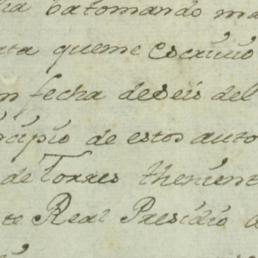 ba tomando ma
ta queme escriuio
n fecha de seis del
ncipio de estos auto
de Torres thenient
te Real Presidio d